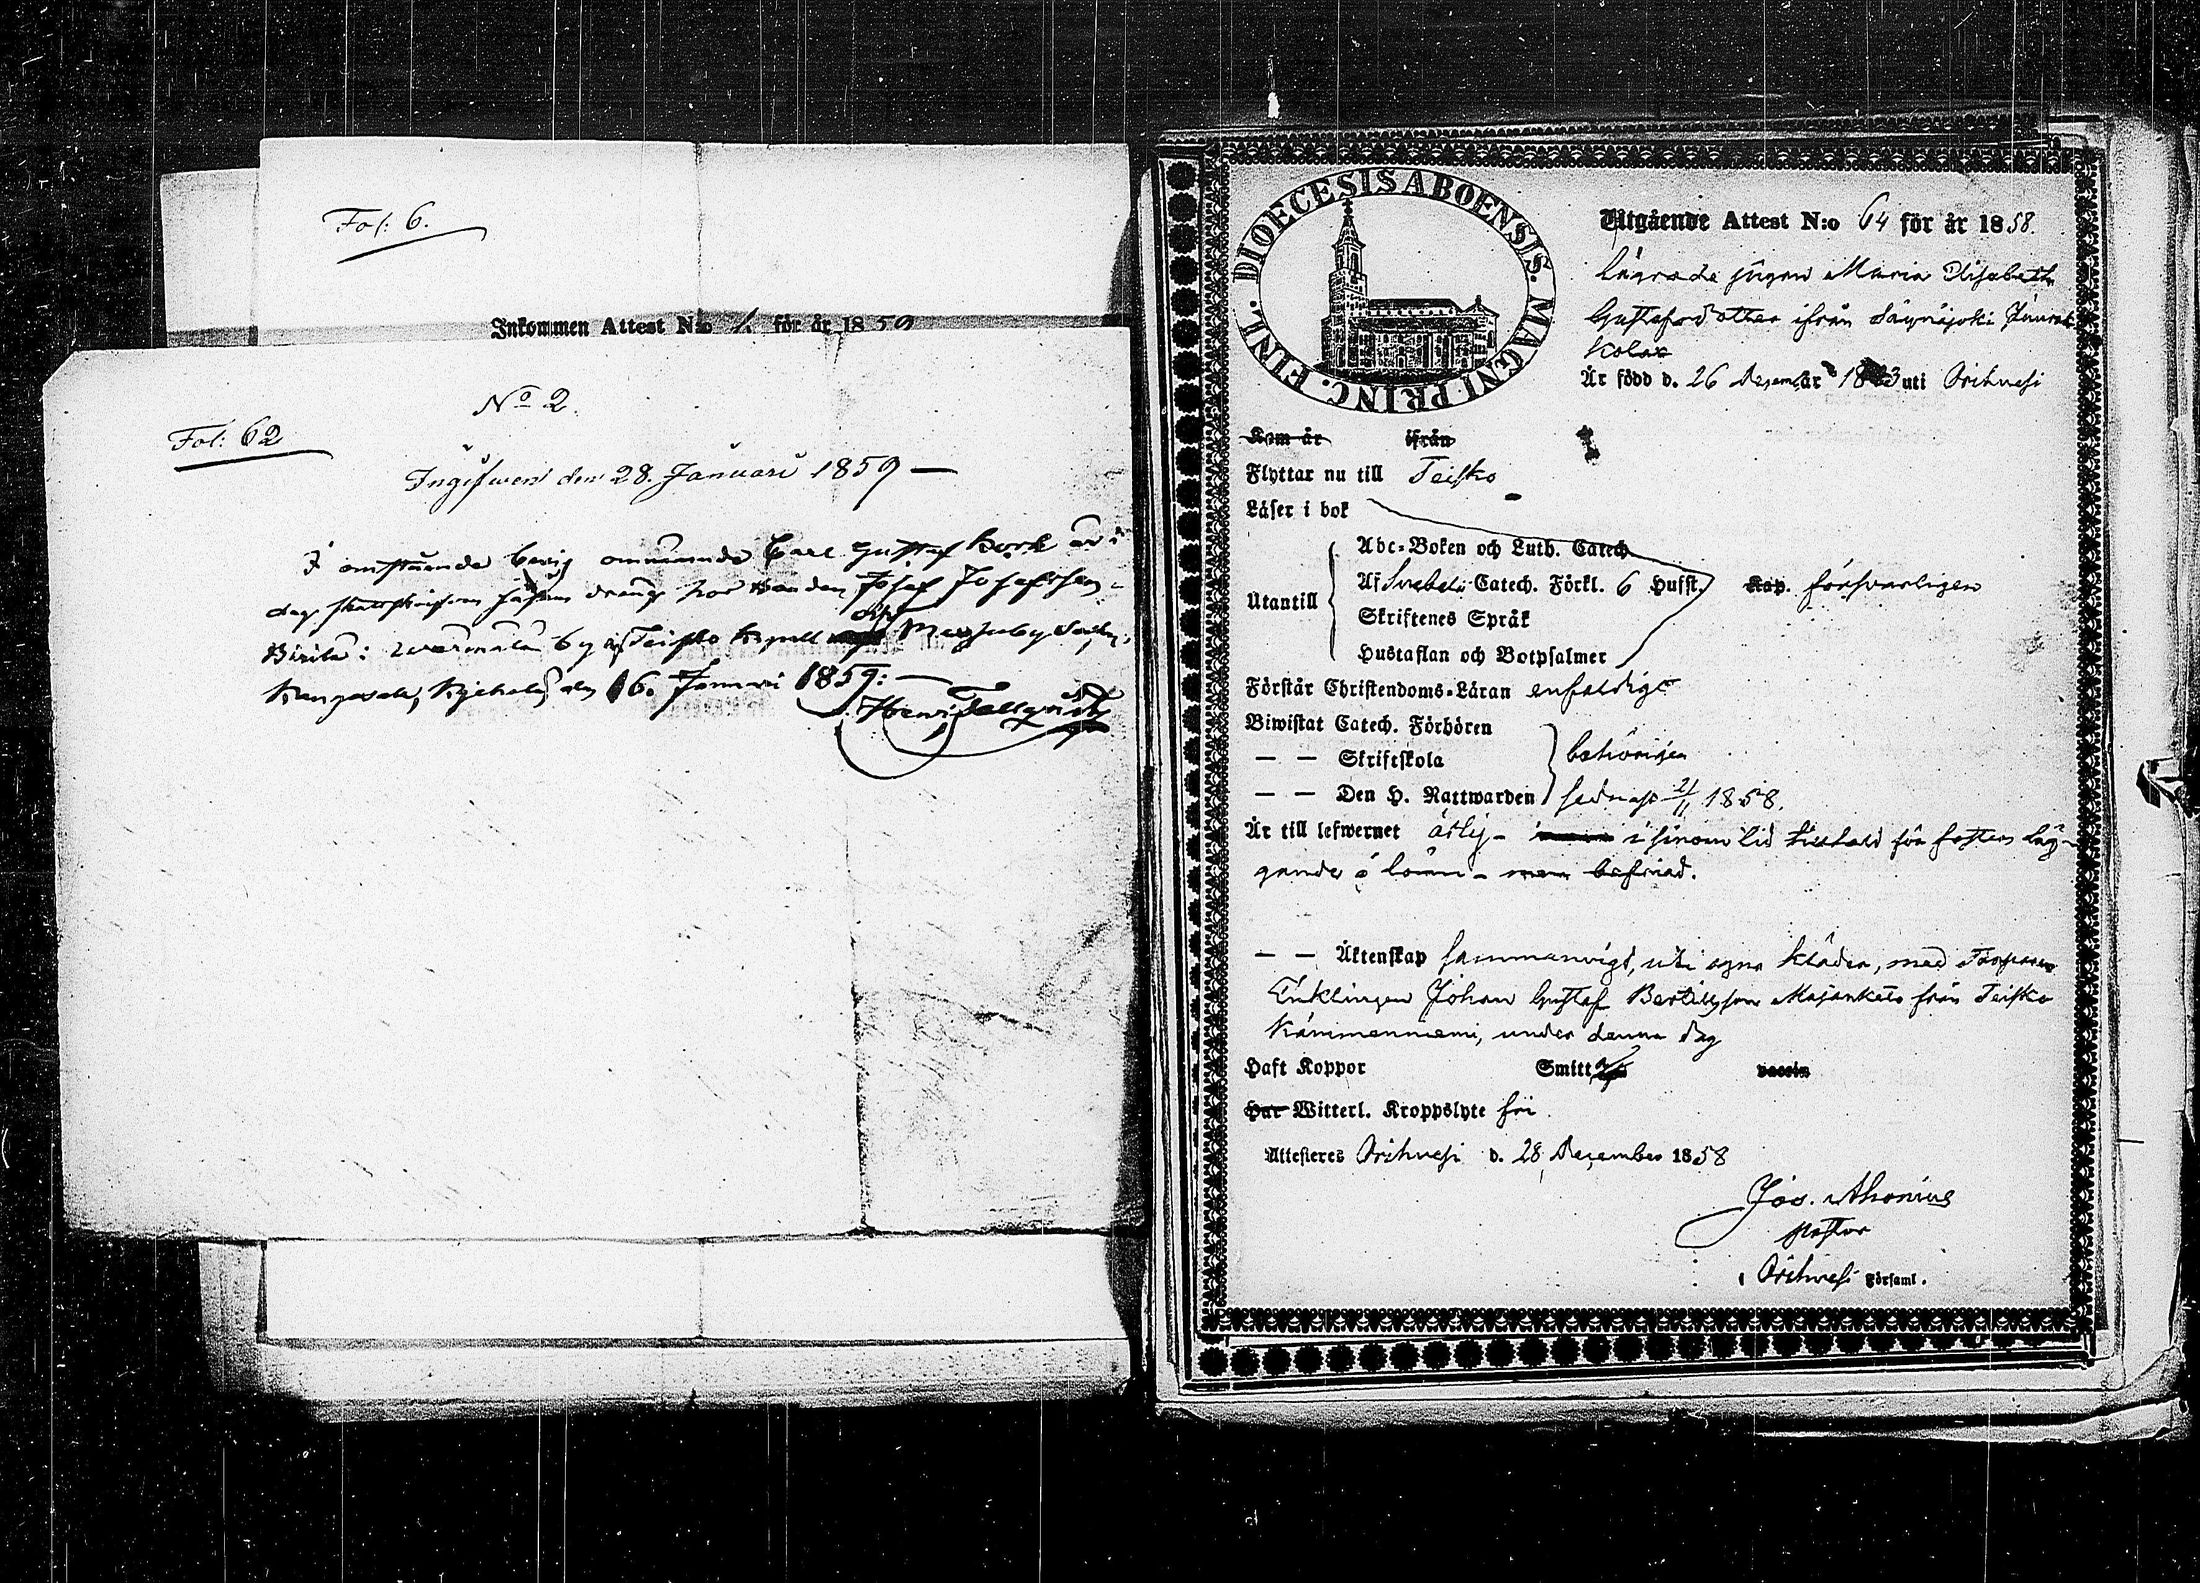 Fol: 6.
Inkommen Attest N:o 1. för år 1859
No 2.
Fol: 62
Ingifwen den 28. Januari 1859 —
I omstående bevis omnämnde Carl Gustaf Berk är i
dag såsom dräng hos Bonden Josef Josefsson
i by af Teisko Kapell och Messuby Sochn.
Kangasala, den 16. Januari 1859: —
Henr:
DIOECESIS ABOENSIS. MAGNI PRINC. FINL.
Utgående Attest N:o 64 för år 1858.
Lägrade pigan Maria Elisabeth
Gustafsdotter ifrån Säynäjoki
Kolax
Är född d. 26 Decembr år uti Orihvesi
Kom år ifrån
Flyttar nu till Teisko
Läser i bok
Abc-Boken och Luth. Catech
Utantill
Af Svebelii Catech. Förkl. 6 Hufst. Kap. försvarligen
Skriftenes Språk
Hustaflan och Botpsalmer
Förstår Christendoms-Läran enfaldigt
Biwistat Catech. Förhören
— — Skriftskola behörigen
— — Den H. Nattwarden sednast 21/11 1858.
Är till lefwernet ärlig - i sinom tid för första läg-
gande å lönn - men befriad.
— — Äktenskap sammanvigd, uti egna kläder, med Torparen
Enklingen Johan Gustaf Bertilsson Majanketo från Teisko
Kämmenniemi, under denna dag
Haft Koppor Smitt vaccin
Har Witterl. Kroppslyte fri
Attesteres Orihvesi d. 28 December 1858
Jos. Ahonius
pastor
i Orihvesi Församl.